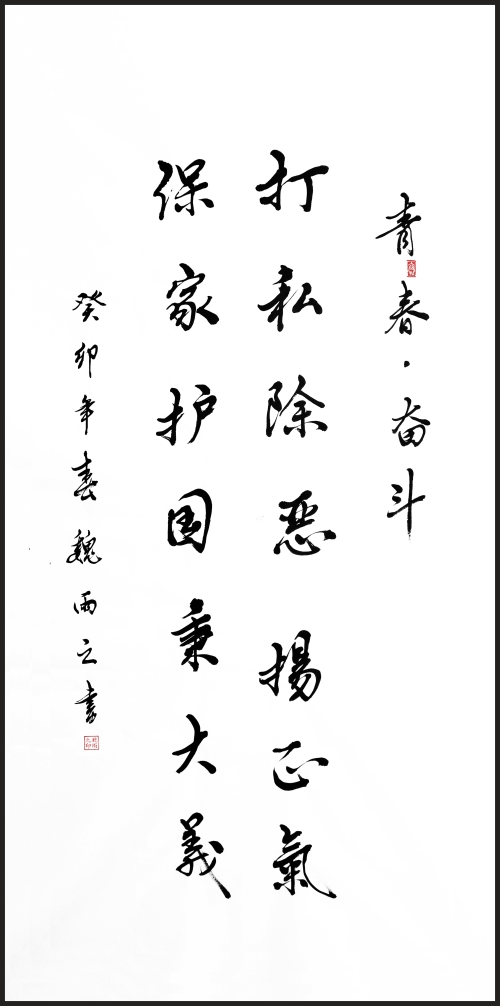 青春·奋斗
打私除惡揚正氣
保家护国秉大義
癸卯年春魏雨之書